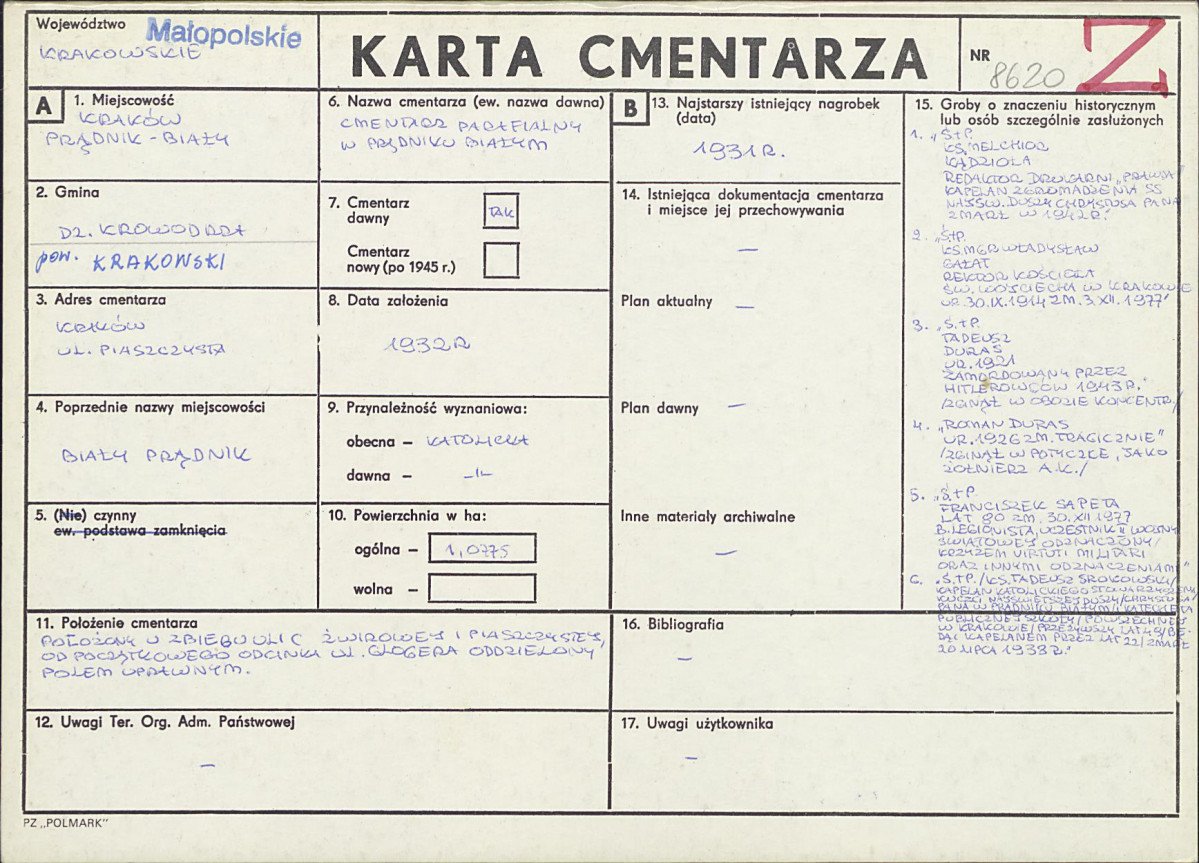 Województwo Małopolskie
KRAKOWSKIE
KARTA CMENTARZA
NR 8620
Z
A
1. Miejscowość
KRAKÓW
PRĄDNIK-BIAŁY
2. Gmina
DZ. KROWODRZA
pow. KRAKOWSKI
3. Adres cmentarza
KRAKÓW
UL. PIASZCZYSTA
4. Poprzednie nazwy miejscowości
BIAŁY PRĄDNIK
5. (Nie) czynny
ew. podstawa zamknięcia
6. Nazwa cmentarza (ew. nazwa dawna)
CMENTARZ PARAFIALNY
W PRĄDNIKU BIAŁYM
7. Cmentarz
dawny
TAK
Cmentarz
nowy (po 1945 r.)
8. Data założenia
1932R
9. Przynależność wyznaniowa:
obecna – KATOLICKA
dawna – -"-
10. Powierzchnia w ha:
ogólna – 1,0775
wolna –
11. Położenie cmentarza
POŁOŻONY U ZBIEGU ULIC ŻWIROWEJ I PIASZCZYSTEJ,
OD POCZĄTKOWEGO ODCINKA UL. GLOGERA ODDZIELONY
POLEM UPRAWNYM.
12. Uwagi Ter. Org. Adm. Państwowej
–
B
13. Najstarszy istniejący nagrobek
(data)
1931R.
14. Istniejąca dokumentacja cmentarza
i miejsce jej przechowywania
–
Plan aktualny –
Plan dawny –
Inne materiały archiwalne
–
15. Groby o znaczeniu historycznym
lub osób szczególnie zasłużonych
1. „Ś.+P.
KS. MELCHIOR
KĄDZIOŁA
REDAKTOR DRUKARNI „PRAWDA"
KAPELAN ZGROMADZENIA SS
NAJŚW. DUSZY CHRYSTUSA PANA
ZMARŁ W 1942R."
2. „Ś+P.
KS. MGR WŁADYSŁAW
GAŁAT
REKTOR KOŚCIOŁA
ŚW. WOJCIECHA W KRAKOWIE
UR. 30.IX.1914 ZM. 3.XII.1977"
3. „Ś.+P.
TADEUSZ
DURAS
UR. 1921
ZAMORDOWANY PRZEZ
HITLEROWCÓW 1943R."
/ZGINĄŁ W OBOZIE KONCENTR./
4. „ROMAN DURAS
UR. 1926 ZM. TRAGICZNIE"
/ZGINĄŁ W POTYCZCE, JAKO
ŻOŁNIERZ A.K./
5. „Ś+P.
FRANCISZEK SAPETA
LAT 80 ZM. 30.XII.1977
B. LEGIONISTA, UCZESTNIK II WOJNY
ŚWIATOWEJ ODZNACZONY/
KRZYŻEM VIRTUTI MILITARI
ORAZ INNYMI ODZNACZENIAMI"
6. „Ś.+P./KS. TADEUSZ SROKOWSKI/
KAPELAN KATOLICKIEGO STOWARZYSZENIA
NAJŚWIĘTSZEJ DUSZY/CHRYSTUSA/
PANA W PRĄDNIKU BIAŁYM/I KATECHETA
PUBLICZNEJ SZKOŁY/POWSZECHNEJ
W KRAKOWIE/PRZEŻYWSZY LAT 49/BĘ-
DĄC KAPELANEM PRZEZ LAT 22/ZMARŁ
20 LIPCA 1938R."
16. Bibliografia
–
17. Uwagi użytkownika
–
PZ „POLMARK"